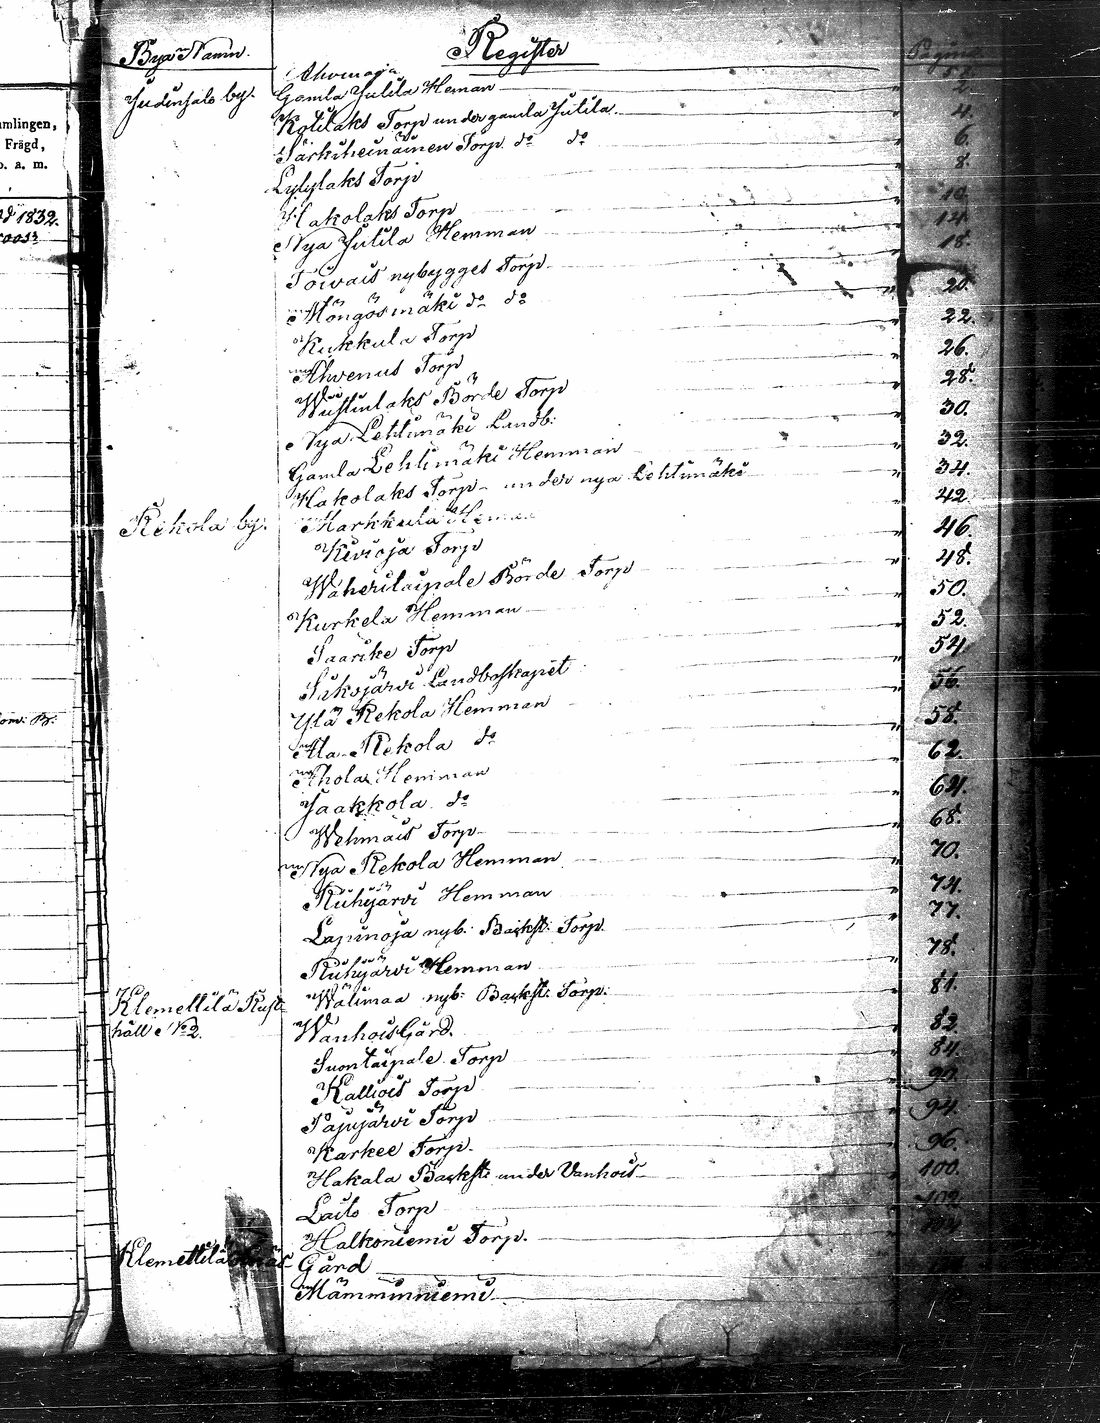 amlingen,
Frägd,
o. a. m.
1832.
Bya Namn. Register Pagina
Ahvenoja 52.
Judinsalo by. Gamla Jutila Heman 2
Kotilaks Torp under gamla Jutila. 4.
Särkiheinäinen Torp do do 6.
Lylylaks Torp 8.
Hakolaks Torp 10
Nya Jutila Hemman 14.
Toivais nybygges Torp 18.
Möngösmäki do do 20.
Kukkula Torp 22.
Ahvenus Torp 26.
Wuštinlaks Börde Torp 28.
Nya Lehtimäki Landb: 30.
Gamla Lehtimäki Hemman 32.
Hakolaks Torp - under nya Lehtimäki 34.
Rekola by. Markkula Heman 42.
Kivioja Torp 46.
Waheritaipale Börde Torp 48.
Kurkela Hemman 50.
Saarike Torp 52.
Siksjärvi Landboskapet 54.
Ylä Rekola Hemman 56.
Ala Rekola do 58.
Ahola Hemman 62.
Jaakkola do 64.
Wehmais Torp 68.
Nya Rekola Hemman 70.
Ruhijärvi Hemman 74.
Lapinoja nyb: Backst: Torp. 77.
Ruhijärvi Hemman 78.
Klemettilä Rust- Wälimaa nyb: Backst: Torp: 81.
håll No 2. Wanhois Gård. 82.
Suontaipale Torp 84.
Kalliois Torp 90.
Pajujärvi Torp 94.
Karkee Torp. 96.
Hakala Backst: under Vanhois 100.
Laito Torp 102
Halkoniemi Torp. 104
Klemettilä Gård
Mämminniemi